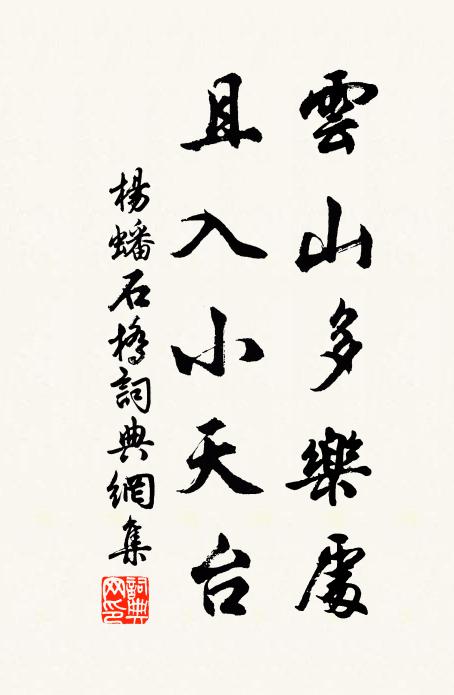 雲山多樂處
且入小天台
楊蟠石橋詞典網集
詞典网印